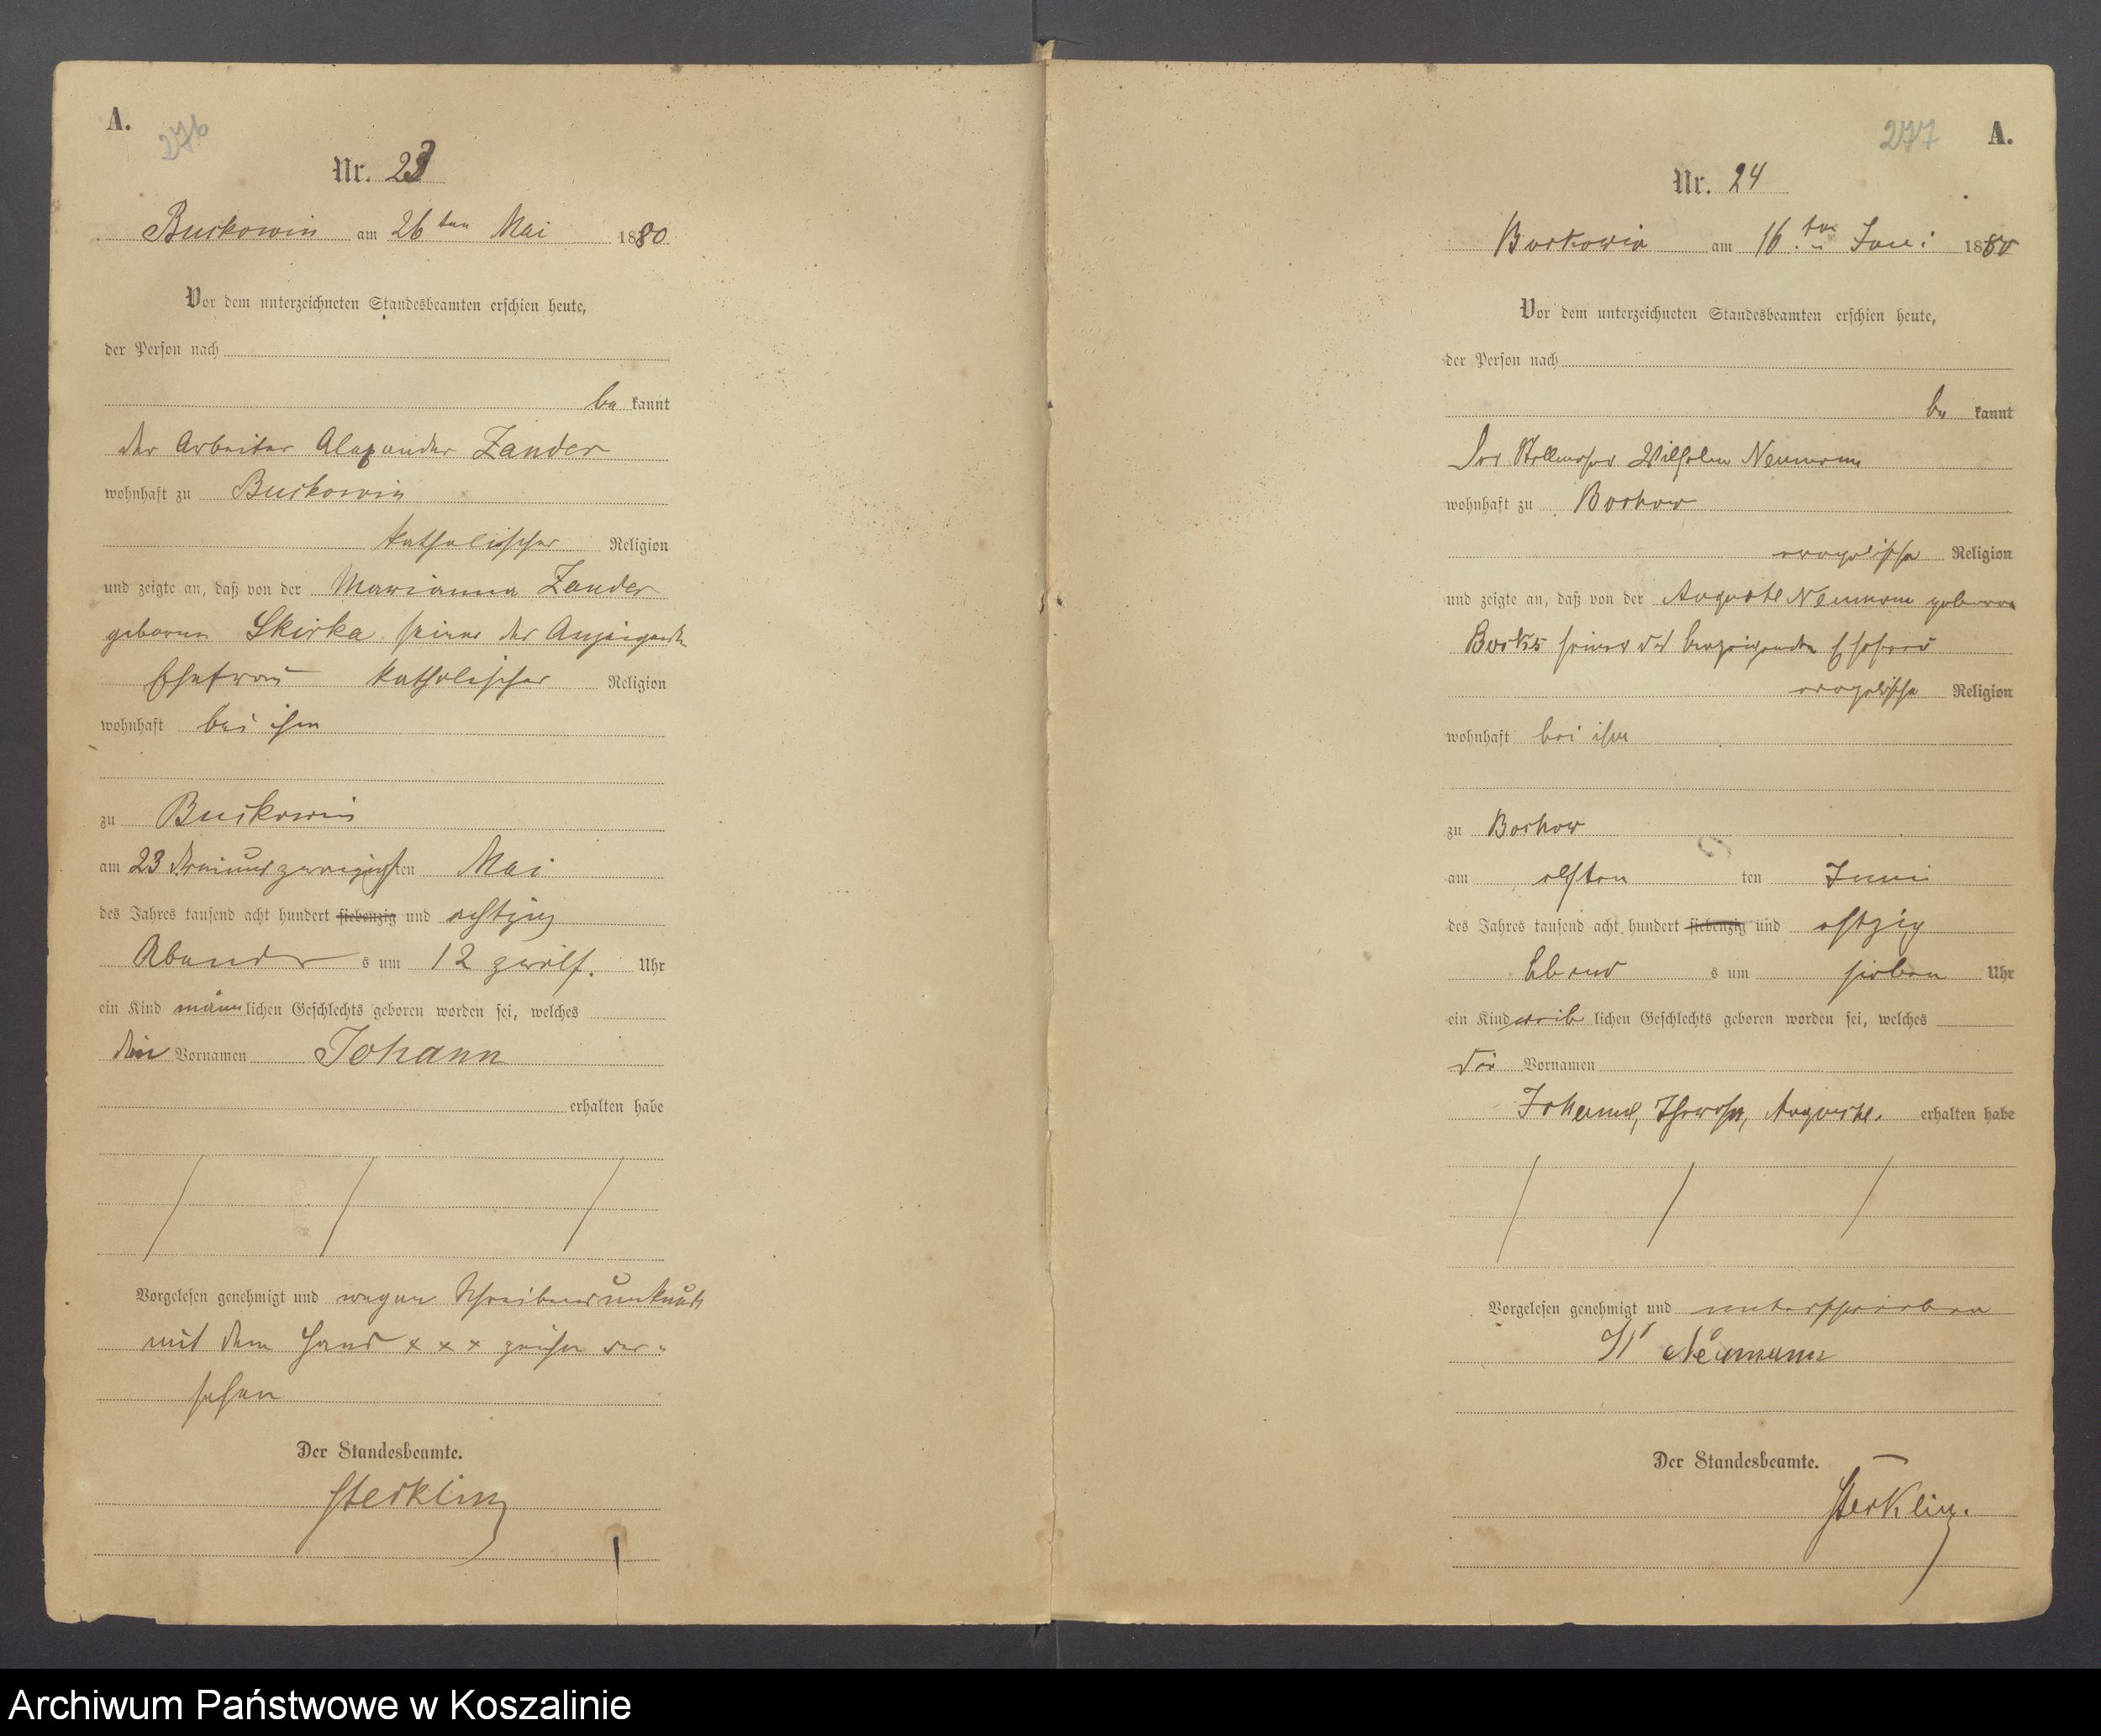 A.
276
Nr. 23
Buckowin am 26ten Mai 1880
Vor dem unterzeichneten Standesbeamten erschien heute,
der Person nach
be kannt
der Arbeiter Alexander Zander
wohnhaft zu Buckowin
katholischer Religion
und zeigte an, daß von der Marianna Zander
geboren Skirka seiner des Anzeigenden
Ehefrau katholischer Religion
wohnhaft bei ihm
zu Buckowin
am 23 dreiundzwanzigsten Mai
des Jahres tausend acht hundert siebenzig und achtzig
Abends um 12 zwölf. Uhr
ein Kind männlichen Geschlechts geboren worden sei, welches
den Vornamen Johann
erhalten habe
Vorgelesen genehmigt und wegen Schreibensunkunde
mit dem Hand x x x zeichen ver-
sehen
Der Standesbeamte.
Sterkling
277
A.
Nr. 24
Buckowin am 16ten Juni 1880
Vor dem unterzeichneten Standesbeamten erschien heute,
der Person nach
be kannt
Der Wilhelm Neumann
wohnhaft zu Boskow
evangelischer Religion
und zeigte an, daß von der Auguste Neumann geboren
seiner des Anzeigenden Ehefrau
evangelischer Religion
wohnhaft bei ihm
zu Boskow
am elften ten Juni
des Jahres tausend acht hundert siebenzig und achtzig
Abends um sieben Uhr
ein Kind weiblichen Geschlechts geboren worden sei, welches
die Vornamen
Johanne, Therese, Auguste. erhalten habe
Vorgelesen genehmigt und unterschrieben
W Neumann
Der Standesbeamte.
Sterkling.
Archiwum Państwowe w Koszalinie